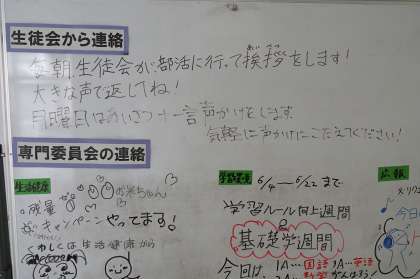 生徒会から連絡
毎朝生徒会が部活に行って挨拶をします!
大きな声で返してね!
月曜日はあいさつ+一言声かけをします
気軽に声かけにこたえてください!
専門委員会の連絡
生活健康
お米ちゃん
減量
キャンペーンやってます!
くわしくは生活健康から
学習環境 6/4—6/22まで
学習ルール向上週間
基礎学習週間
今回は、 1A…国語 1A…英語
広報
今日